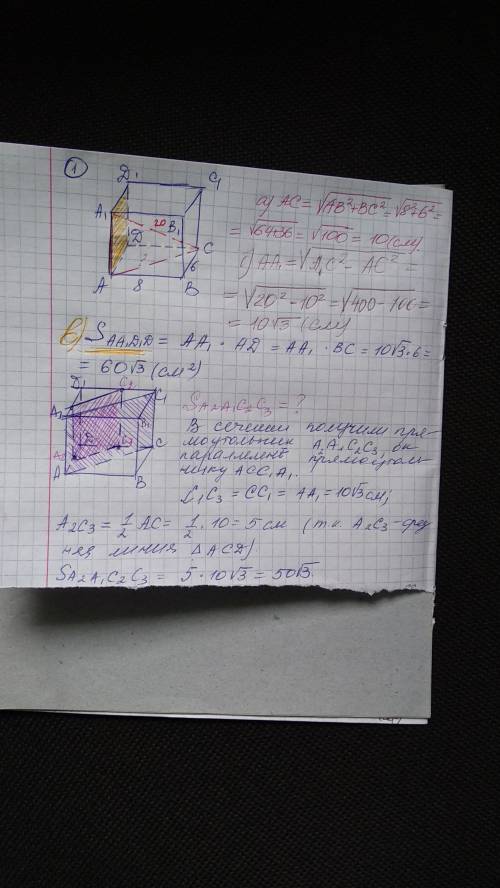 1
D₁ C₁
A₁ 20 B₁
D C
6
A 8 B
а) AC = √AB²+BC² = √8²+6² =
= √64+36 = √100 = 10 (см)
AA₁ = √A₁C² - AC² =
= √20² - 10² = √400 - 100 =
= 10√3 (см)
в) S AA₁D₁D = AA₁ · AD = AA₁ · BC = 10√3·6 =
= 60√3 (см²)
D₁ C₂ C₁
A₂ B₁
C₃ C
A B
S A₂A₁C₂C₃ = ?
В сечении получим пря-
моугольник A₁A₂C₂C₃, он
параллелен прямоуголь-
нику ACC₁A₁.
C₂C₃ = CC₁ = AA₁ = 10√3 см;
A₂C₃ = 1/2 AC = 1/2 · 10 = 5 см (т.к. A₂C₃ - сред-
няя линия ΔACD)
S A₂A₁C₂C₃ = 5 · 10√3 = 50√3